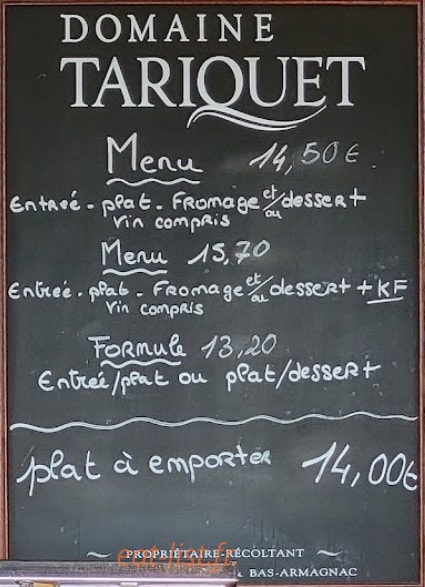 DOMAINE
TARIQUET
Menu 14,50€
Entrée - plat - Fromage et/ou dessert
vin compris
Menu 15,70
Entrée - plat - Fromage et/ou dessert + KF
vin compris
Formule 13,20
Entrée/plat ou plat/dessert
plat à emporter 14,00€
PROPRIÉTAIRE-RÉCOLTANT
& BAS-ARMAGNAC